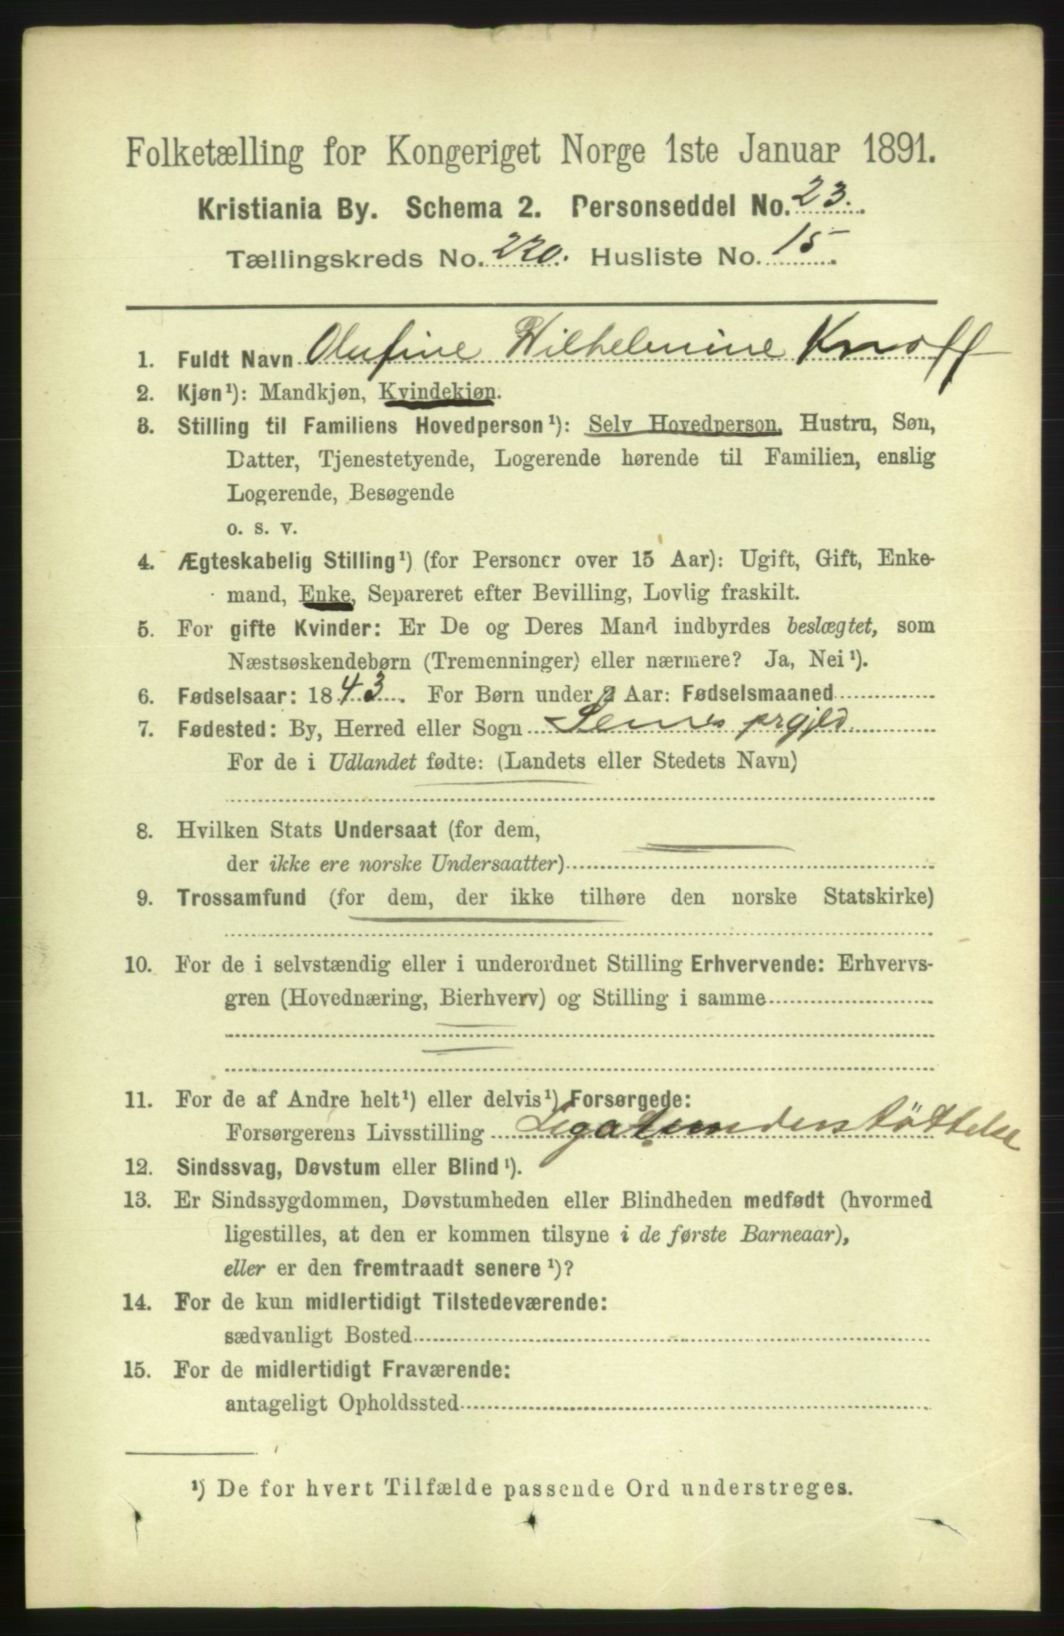 Folketælling for Kongeriget Norge 1ste Januar 1891.
Kristiania By. Schema 2. Personseddel No. 23.
Tællingskreds No. 220. Husliste No. 15.
1. Fuldt Navn Olufine Wilhelmine Knoff
2. Kjøn¹): Mandkjøn, Kvindekjøn.
3. Stilling til Familiens Hovedperson¹): Selv Hovedperson, Hustru, Søn,
Datter, Tjenestetyende, Logerende hørende til Familien, enslig
Logerende, Besøgende
o. s. v.
4. Ægteskabelig Stilling¹) (for Personer over 15 Aar): Ugift, Gift, Enke-
mand, Enke, Separeret efter Bevilling, Lovlig fraskilt.
5. For gifte Kvinder: Er De og Deres Mand indbyrdes beslægtet, som
Næstsøskendebørn (Tremenninger) eller nærmere? Ja, Nei¹).
6. Fødselsaar: 1843. For Børn under 2 Aar: Fødselsmaaned
7. Fødested: By, Herred eller Sogn Sems prgjld.
For de i Udlandet fødte: (Landets eller Stedets Navn)
8. Hvilken Stats Undersaat (for dem,
der ikke ere norske Undersaatter)
9. Trossamfund (for dem, der ikke tilhøre den norske Statskirke)
10. For de i selvstændig eller i underordnet Stilling Erhvervende: Erhvervs-
gren (Hovednæring, Bierhverv) og Stilling i samme
11. For de af Andre helt¹) eller delvis¹) Forsørgede:
Forsørgerens Livsstilling Legatunderstøttelse
12. Sindssvag, Døvstum eller Blind¹).
13. Er Sindssygdommen, Døvstumheden eller Blindheden medfødt (hvormed
ligestilles, at den er kommen tilsyne i de første Barneaar),
eller er den fremtraadt senere¹)?
14. For de kun midlertidigt Tilstedeværende:
sædvanligt Bosted
15. For de midlertidigt Fraværende:
antageligt Opholdssted
¹) De for hvert Tilfælde passende Ord understreges.